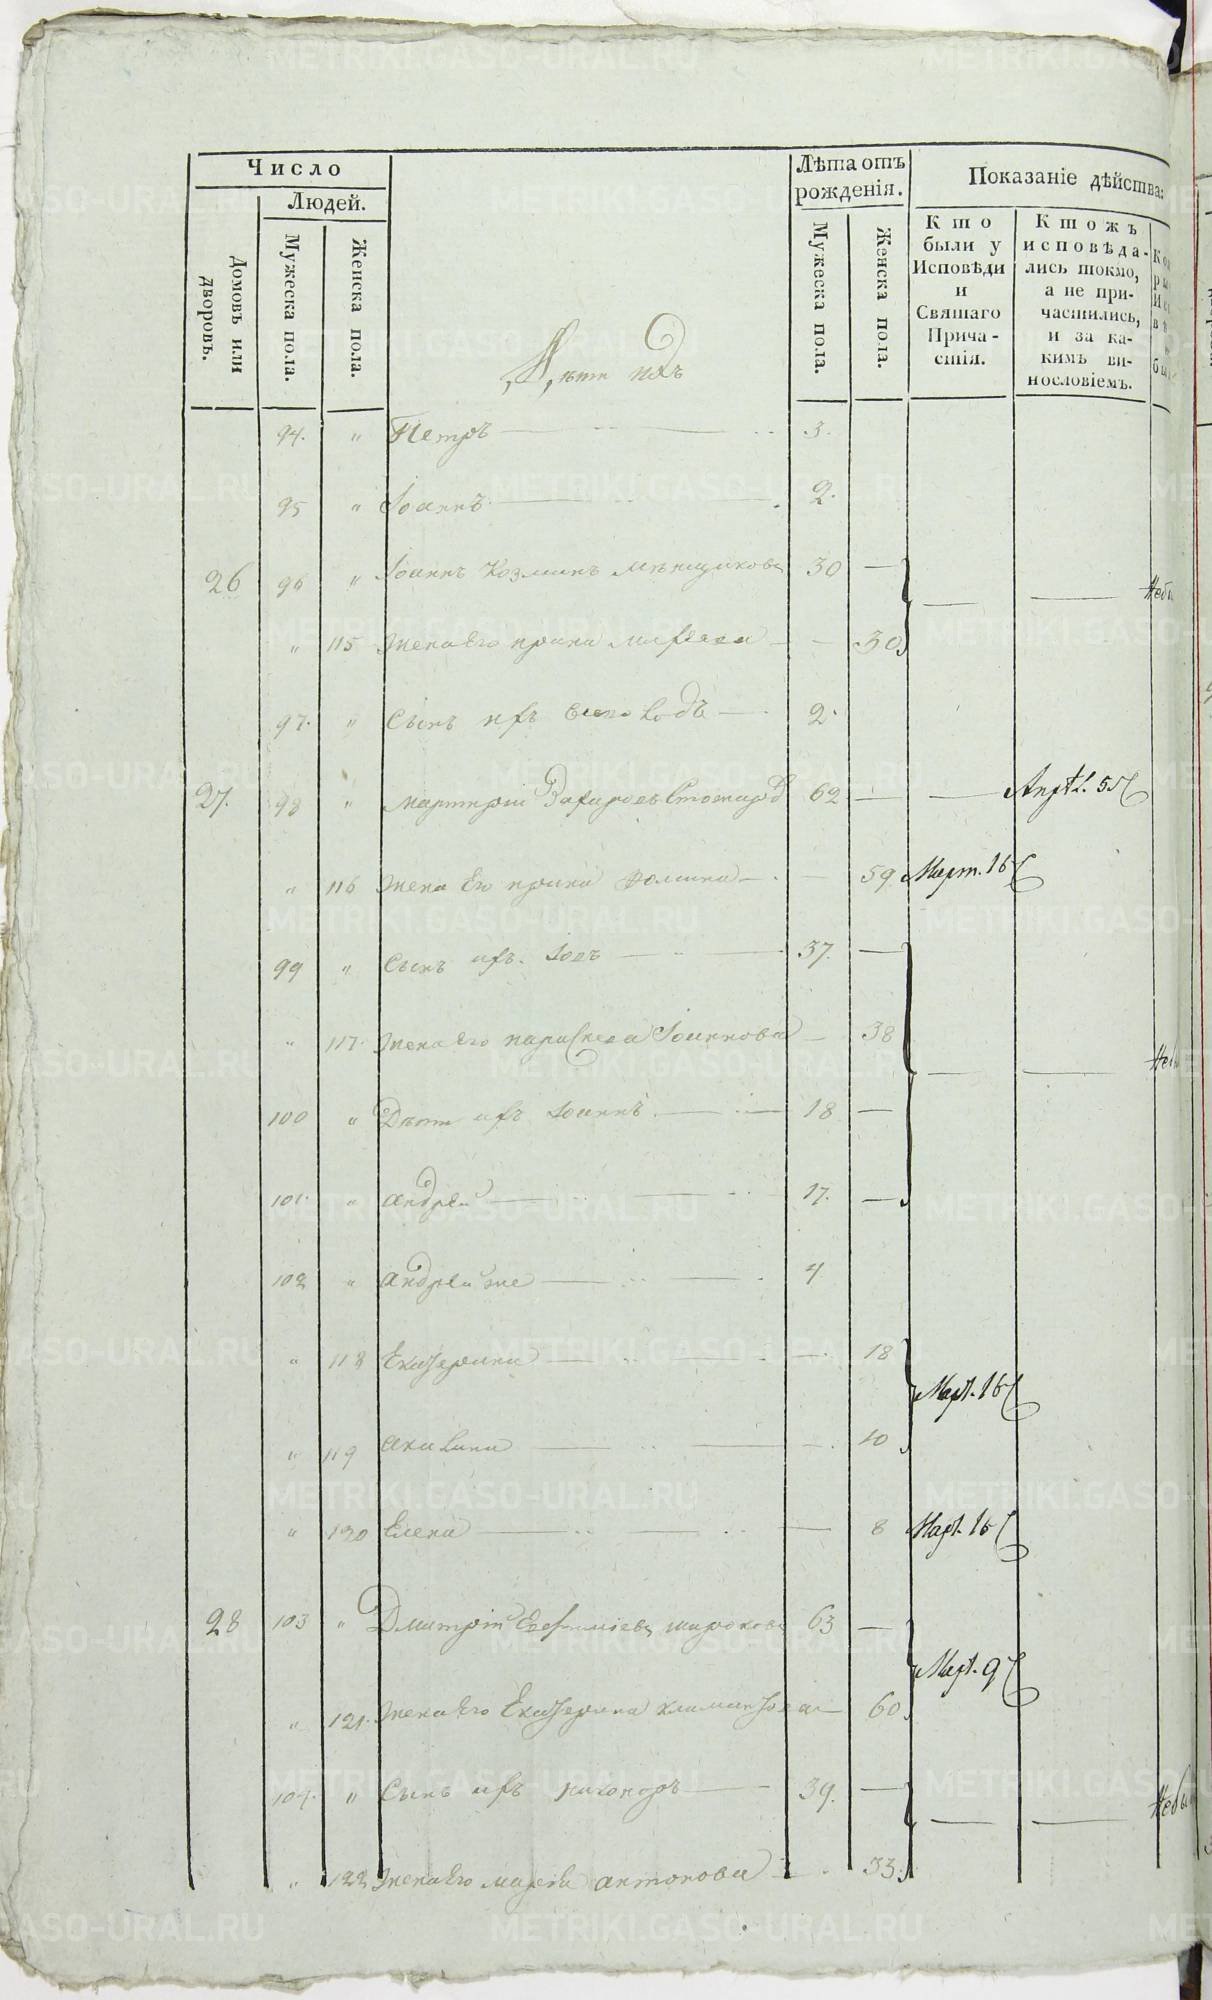 Число
Людей.
Домовъ или дворовъ.
Мужеска пола.
Женска пола.
Лѣта отъ рождения.
Мужеска пола.
Женска пола.
Показаніе дѣйства:
Кто были у Исповѣди и Святаго Причастія.
Ктожъ исповѣдались токмо, а не причастились, и за какимъ винословіемъ.
94. " Петръ 3.
95 " Іоаннъ 2.
26 96 " Іоаннъ Козминъ 30 —
" 115 жена его Ирина 30
97. " Сынъ ихъ 2.
27. 98 " 62 — — Апр. 5
" 116 жена Его Ирина Фомина — 59 Март. 16
99 " Сынъ ихъ Іовъ 37. —
" 117. жена Его Параскева Іоаннова — 38
100 " Дѣти ихъ Іоаннъ 18 —
101. " Андрей 17. —
102 " Андрей же 4
" 118 Екатерина — 18
Март. 16
" 119 Акилина — 10
" 120 Елена — 8 Март. 16
28 103 " Дмитрій Евфиміевъ Широковъ 63 —
Март. 9
" 121. жена Его Екатерина — 60
104. " Сынъ ихъ Никоноръ 39. —
" 122 жена Его Марѳа Антонова — 33.